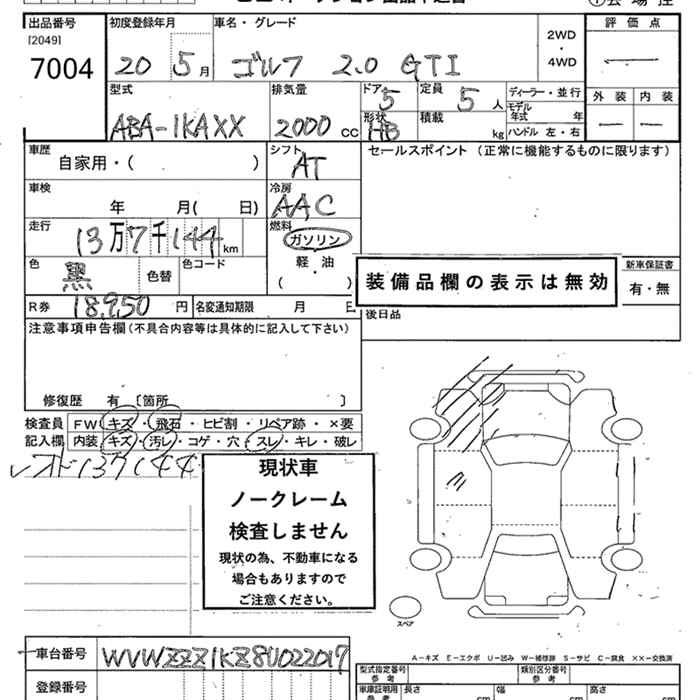 出品番号 初度登録年月 車名・グレード 評価点
[2049]
7004 20 5月 ゴルフ 2.0 GTI 2WD・4WD
型式 排気量 ドア 定員 ディーラー・並行 外装 内装
ABA-1KAXX 2000cc 5 5人 モデル年式 年
形状 HB 積載 kg ハンドル 左・右
車歴 シフト セールスポイント (正常に機能するものに限ります)
自家用・( ) AT
車検 冷房
年 月( 日) AAC
走行 燃料
13万7千144km ガソリン
色 色替 色コード 軽・油 新車保証書
黒 ( ) 装備品欄の表示は無効 有・無
R券 18,950円 名変通知期限 月 日 後日品
注意事項申告欄(不具合内容等は具体的に記入して下さい)
修復歴 有 〔箇所 〕
検査員 FW キズ・飛石・ヒビ割・リペア跡・×要
記入欄 内装 キズ・汚レ・コゲ・穴・スレ・キレ・破レ
137144
現状車
ノークレーム
検査しません
現状の為、不動車になる
場合もありますので
ご注意ください。
スペア
車台番号 WVWZZZ1KZ8U022017
A-キズ E-エクボ U-凹み W-補修跡 S-サビ C-腐食 ××-交換済
登録番号 型式指定番号 参考 類別区分番号 参考
車庫証明用 参考 長さ cm 幅 cm 高さ cm